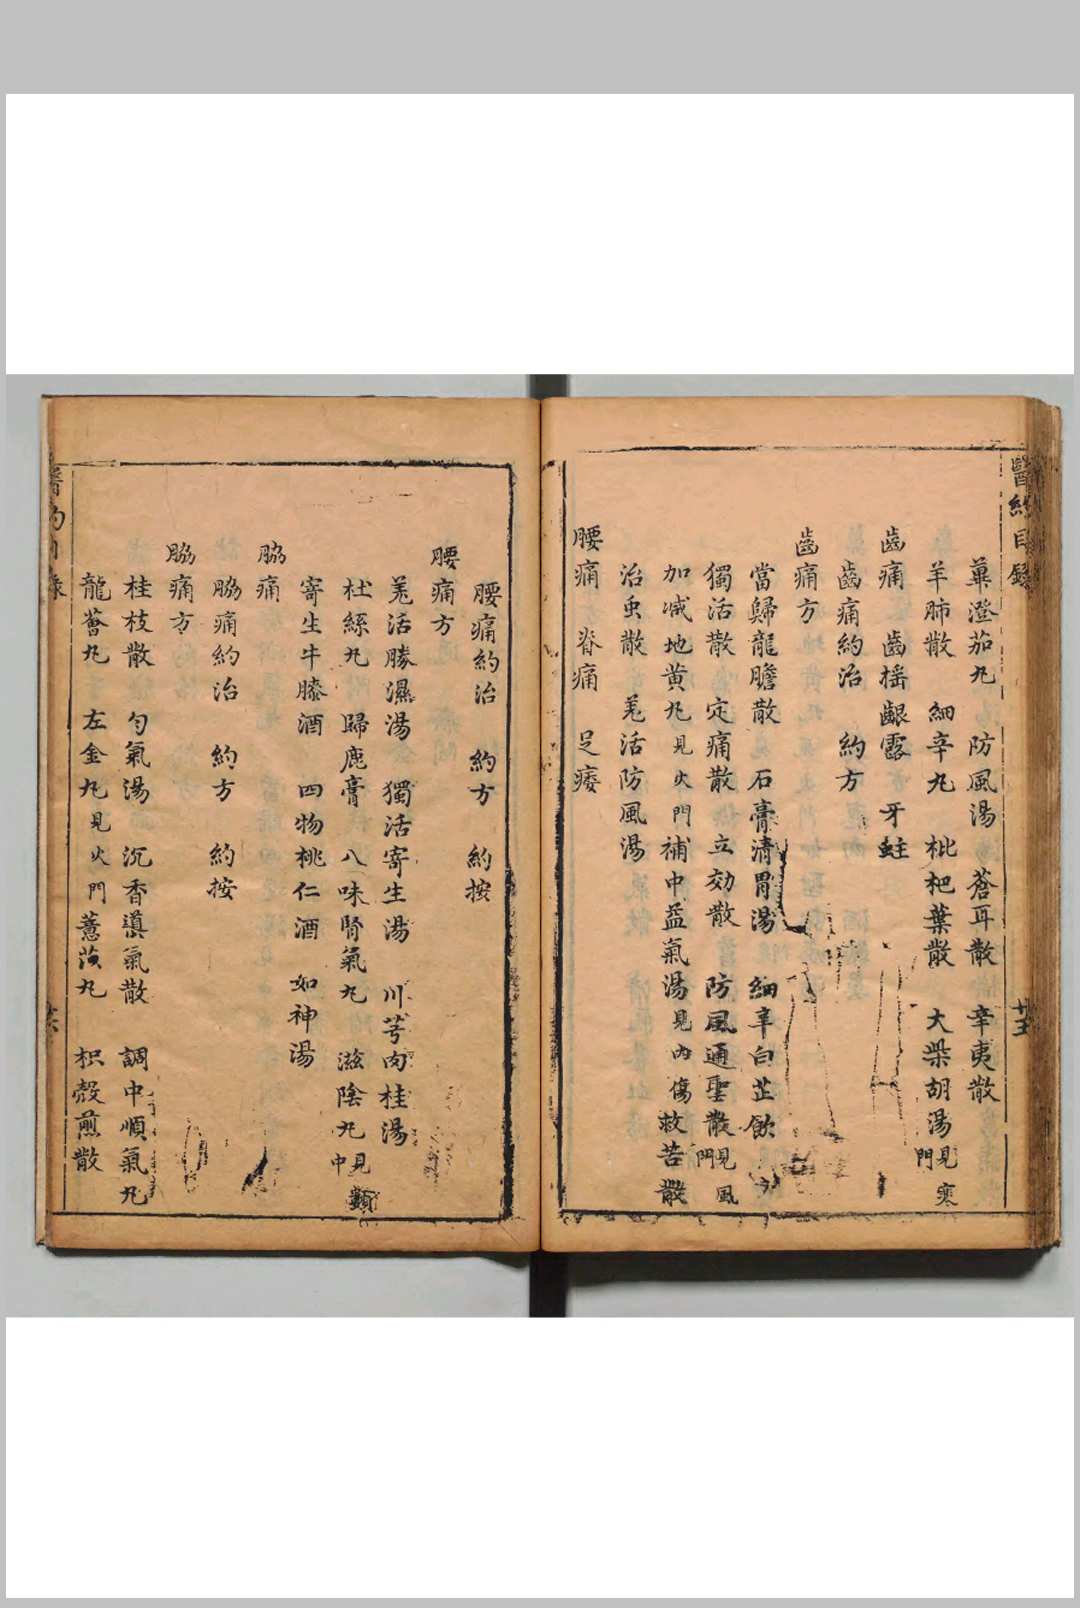 醫約目錄
蓽澄茄丸 防風湯 蒼耳散 辛夷散
羊肺散 細辛丸 枇杷葉散 大柴胡湯見寒門
齒痛 齒搖齦露 牙蛀
齒痛約治 約方
齒痛方
當歸龍膽散 石膏清胃湯 細辛白芷飲
獨活散 定痛散 立効散 防風通聖散見風門
加減地黃丸見火門 補中益氣湯見內傷 救苦散
治虫散 羌活防風湯
腰痛 脊痛 足痿
腰痛約治 約方 約按
腰痛方
羌活勝濕湯 獨活寄生湯 川芎肉桂湯
杜絲丸 歸鹿膏 八味腎氣丸 滋陰丸見類中
寄生牛膝酒 四物桃仁酒 如神湯
脇痛
脇痛約治 約方 約按
脇痛方
桂枝散 勻氣湯 沉香導氣散 調中順氣丸
龍薈丸 左金丸見火門 薏苡丸 枳殼煎散